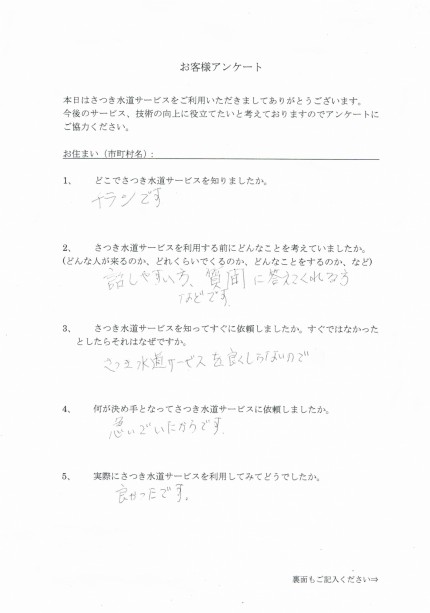 お客様アンケート
本日はさつき水道サービスをご利用いただきましてありがとうございます。
今後のサービス、技術の向上に役立てたいと考えておりますのでアンケートに
ご協力ください。
お住まい（市町村名）:
1、 どこでさつき水道サービスを知りましたか。
チラシです
2、 さつき水道サービスを利用する前にどんなことを考えていましたか。
(どんな人が来るのか、どれくらいでくるのか、どんなことをするのか、など)
話しやすい方、質問に答えてくれる方
などです。
3、 さつき水道サービスを知ってすぐに依頼しましたか。すぐではなかった
としたらそれはなぜですか。
さつき水道サービスを良くしらないので
4、 何が決め手となってさつき水道サービスに依頼しましたか。
急いでいたからです.
5、 実際にさつき水道サービスを利用してみてどうでしたか。
良かったです。
裏面もご記入ください⇒